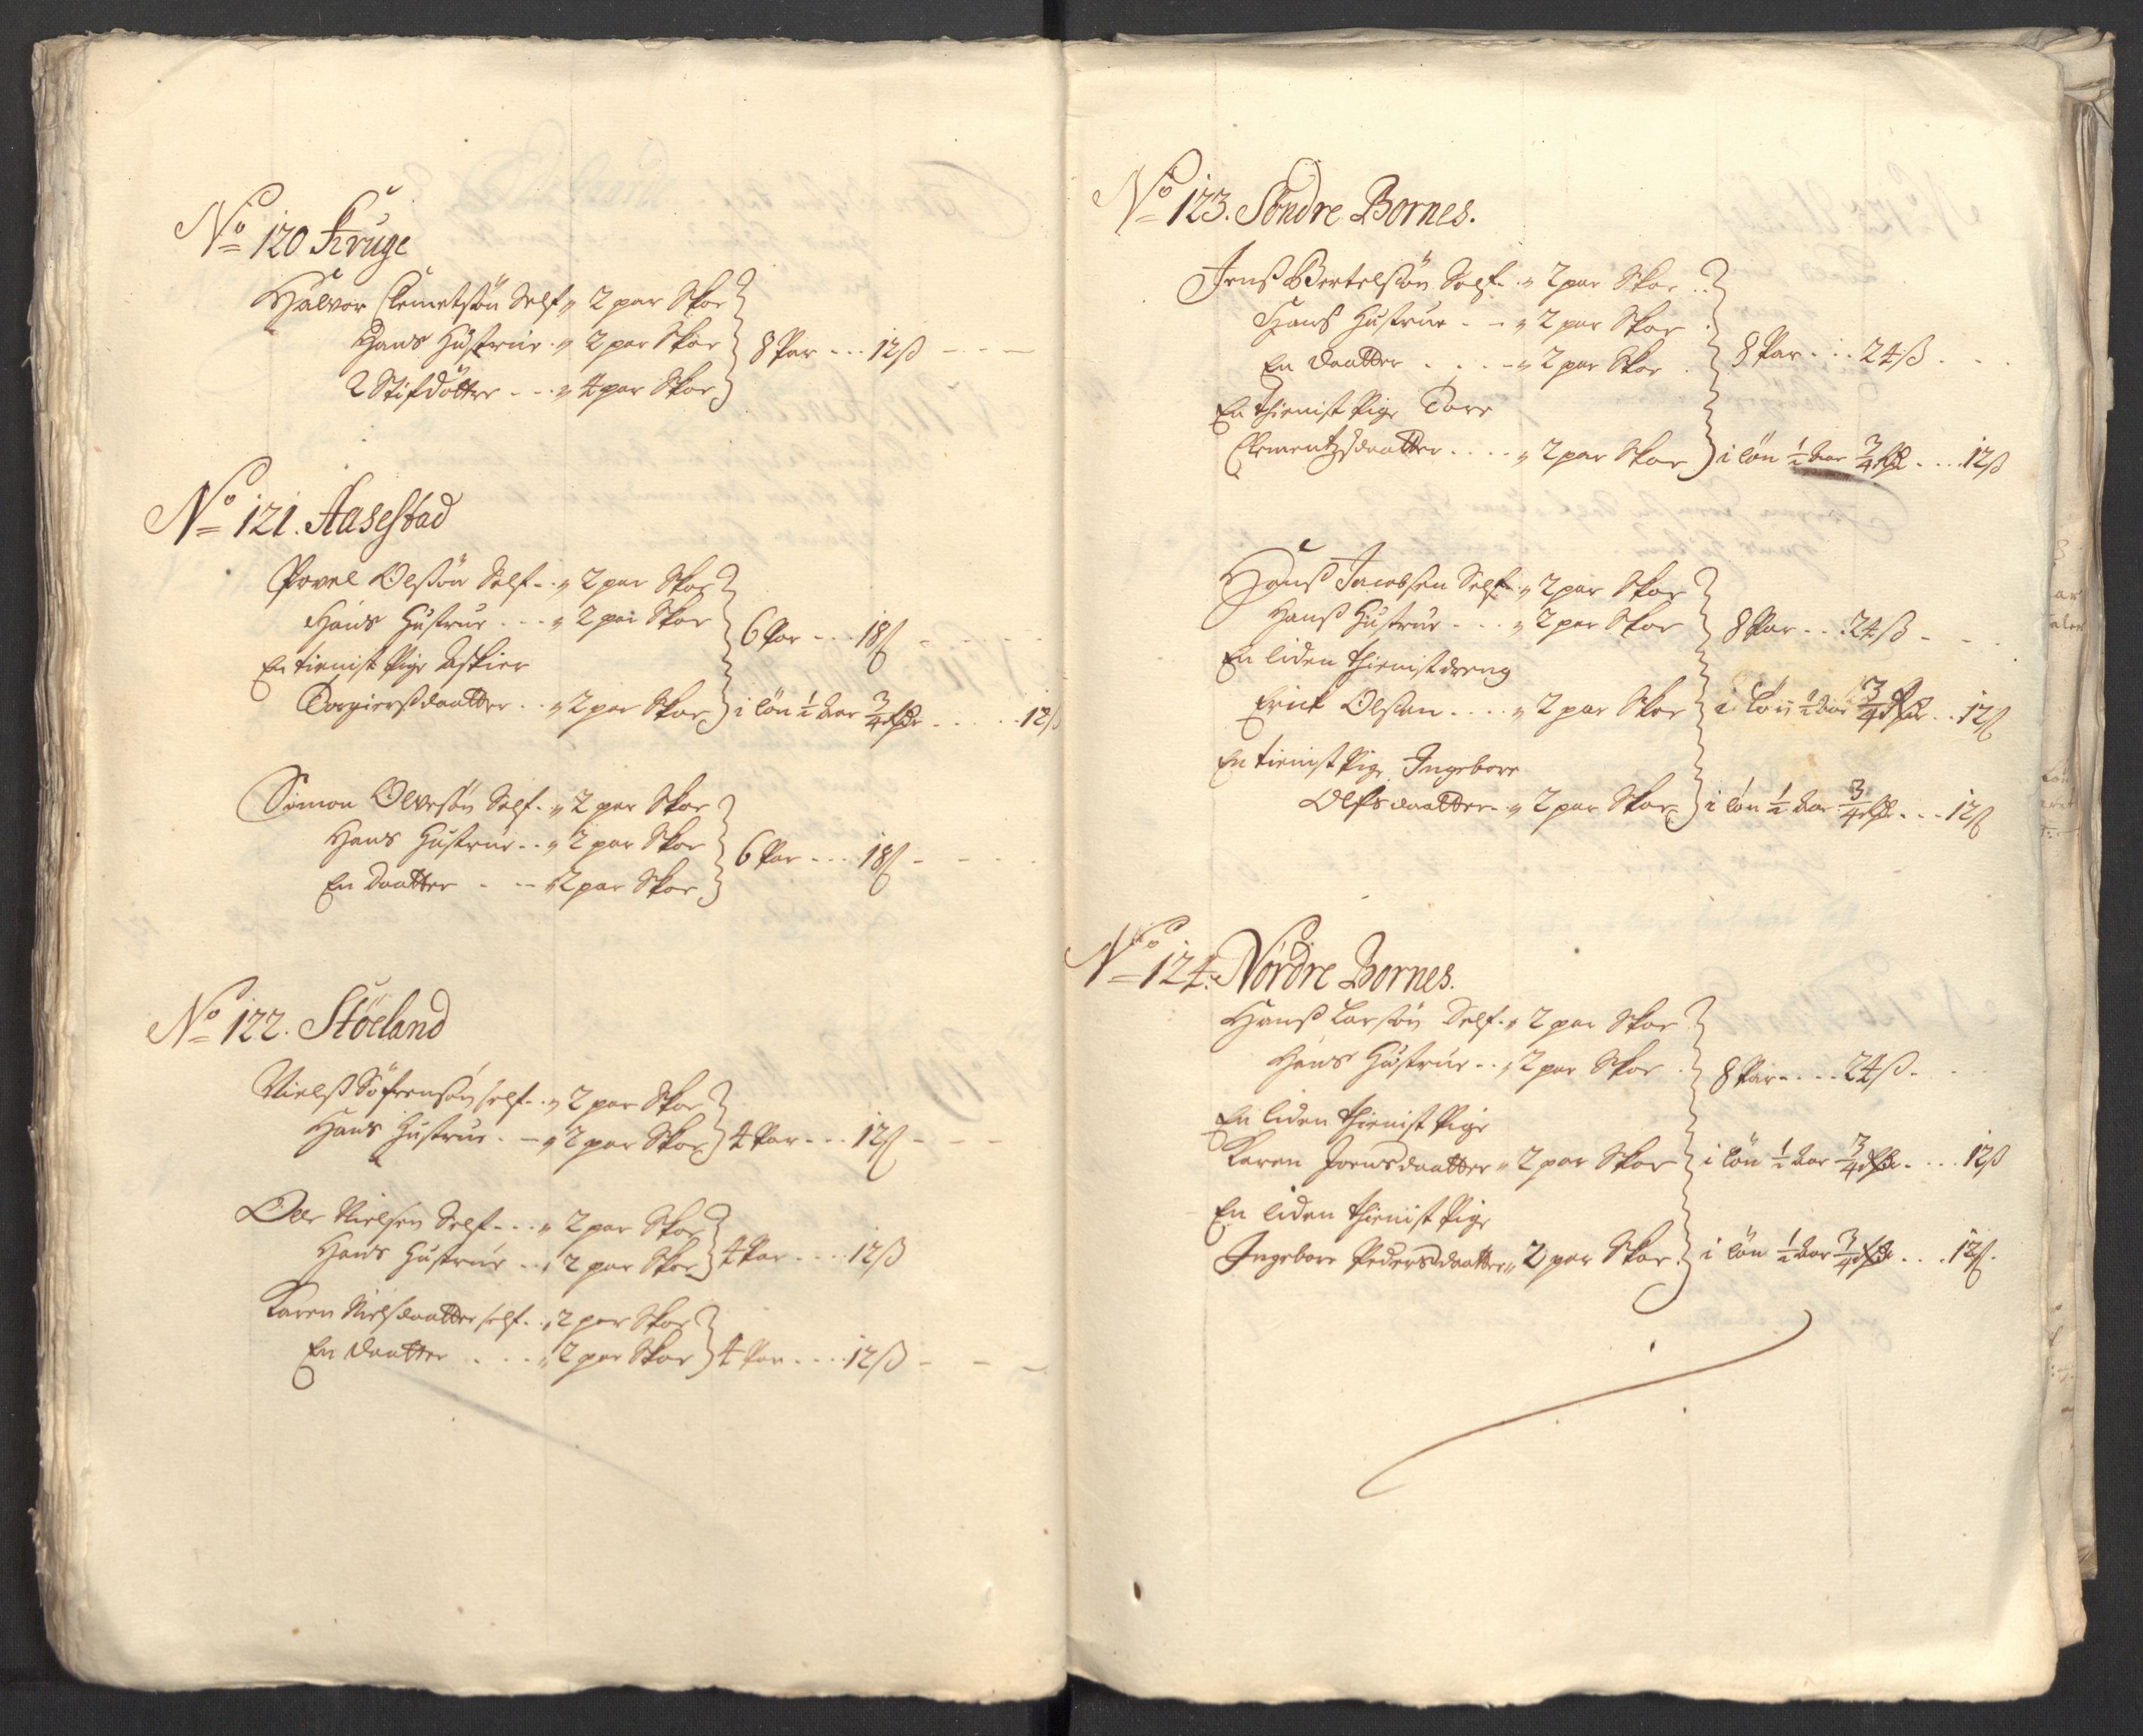 No 120 Kruge
Halvor Clemetsøn Self „ 2 par Skoe
Hans Hustrue „ 2 par Skoe 8 Par - - - 12 ß
2 Stifdøttre - - „ 4 par Skoe
No 121. Aasestad
Povel Olsøn Self - „ 2 par Skoe
Hans Hustrue - - - „ 2 par Skoe 6 Par - - - 18 ß
En tienist Pige
Torgiersdaatter - - „ 2 par Skoe i løn ½ aar ¾ - - - 12 ß
Simon Olvesøn Self - „ 2 par Skoe
Hans Hustrue - - „ 2 par Skoe 6 Par - - - 18 ß
En Daatter - - - „ 2 par Skoe
No 122. Stöeland
Nielß Söfrensøn self - „ 2 par Skoe
Hans Hustrue - - „ 2 par Skoe 4 Par - - - 12 ß
Ole Nielsen Self - - - „ 2 par Skoe
Hans Hustrue - - „ 2 par Skoe 4 Par - - - 12 ß
Karen Nielsdaatter self - „ 2 par Skoe
En daatter - - - „ 2 par Skoe 4 Par - - - 12 ß
No 123. Söndre Bornes.
Jens Bertelsøn Self - „ 2 par Skoe
Hans Hustrue - - „ 2 par Skoe
En daatter - - - „ 2 par Skoe 8 Par - - - 24 ß
En thienist Pige Tore
Clementzdaatter - - - „ 2 par Skoe i løn ½ aar ¾ - - - 12 ß
Hanß Jacobsen Self - „ 2 par Skoe
Hanß Hustrue - - - „ 2 par Skoe 8 Par - - - 24 ß
En liden thienistdreng
Erick Olsen - - - - „ 2 par Skoe i løn ½ aar ¾ - - 12 ß
En tienist Pige Ingebor
Olfsdaatter - „ 2 par Skoe i løn ½ aar ¾ - - - 12 ß
No 124. Nordre Bornes.
Hanß Larsøn Self - „ 2 par Skoe
Hans Hustrue - - „ 2 par Skoe 8 Par - - - - 24 ß
En liden thienist Pige
Karen Joensdaatter „ 2 par Skoe i løn ½ aar ¾ - - - 12 ß
En liden thienist Pige
Ingebor Pedersdaatter „ 2 par Skoe i løn ½ aar ¾ - - - 12 ß